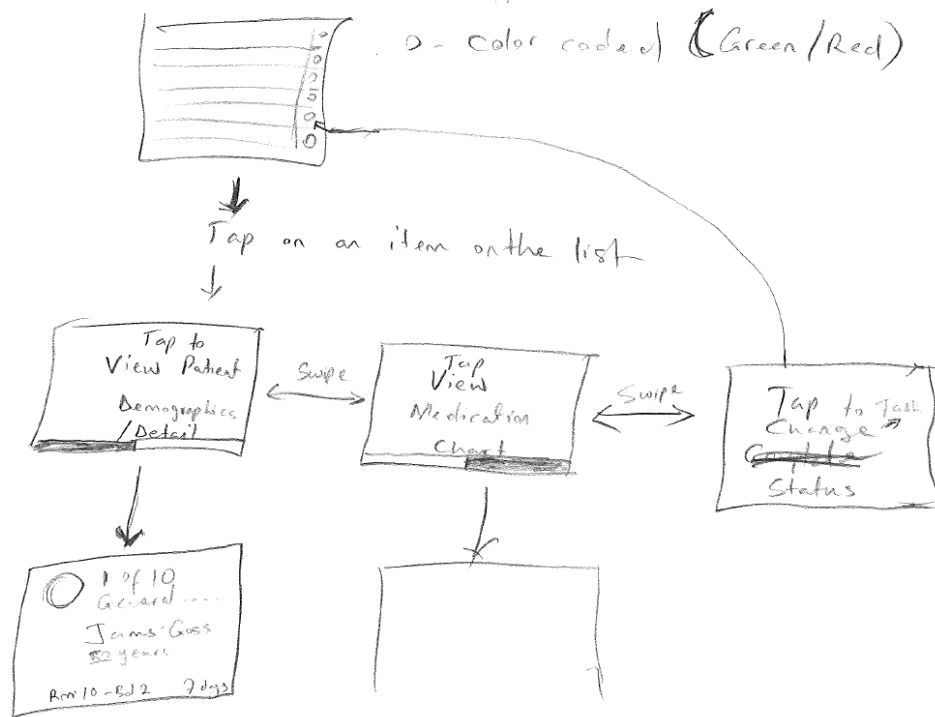 o - Color coded (Green/Red)
Tap on an item on the list
Tap to
View Patient
Demographics
/Detail
Swipe
Tap
View
Medication
Chart
Swipe
Tap to Task
Change
Complete
Status
1 of 10
General ....
Jams Goss
52 years
Rm 10 - Bd 2 7 days